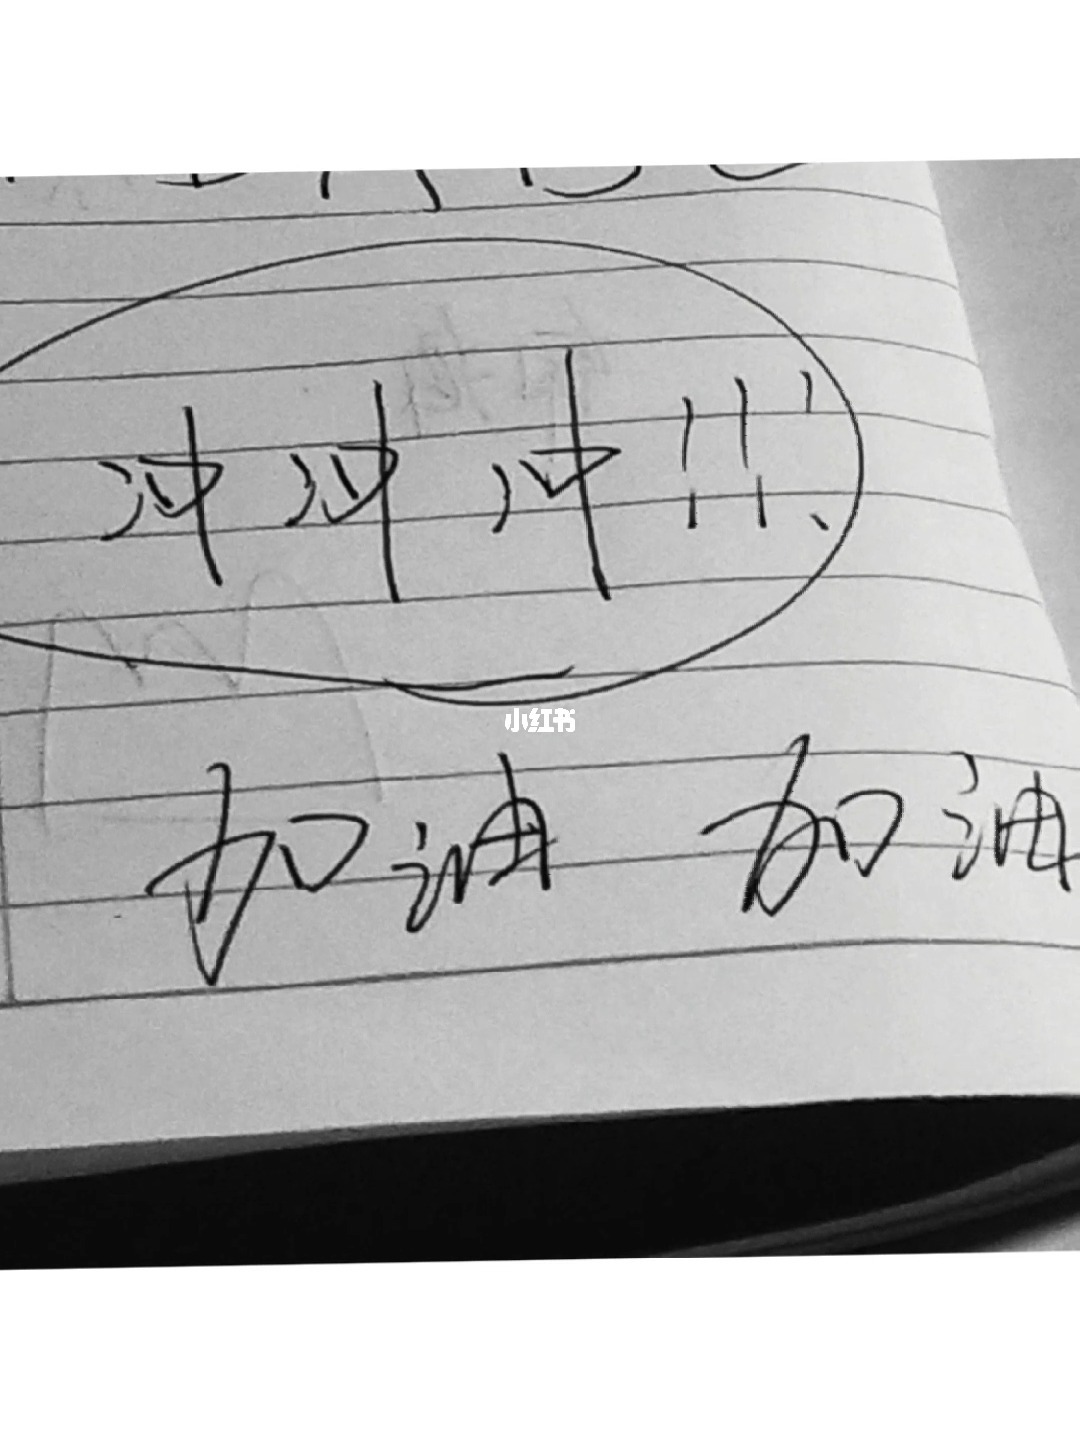 冲冲冲!!!
小红书
加油 加油